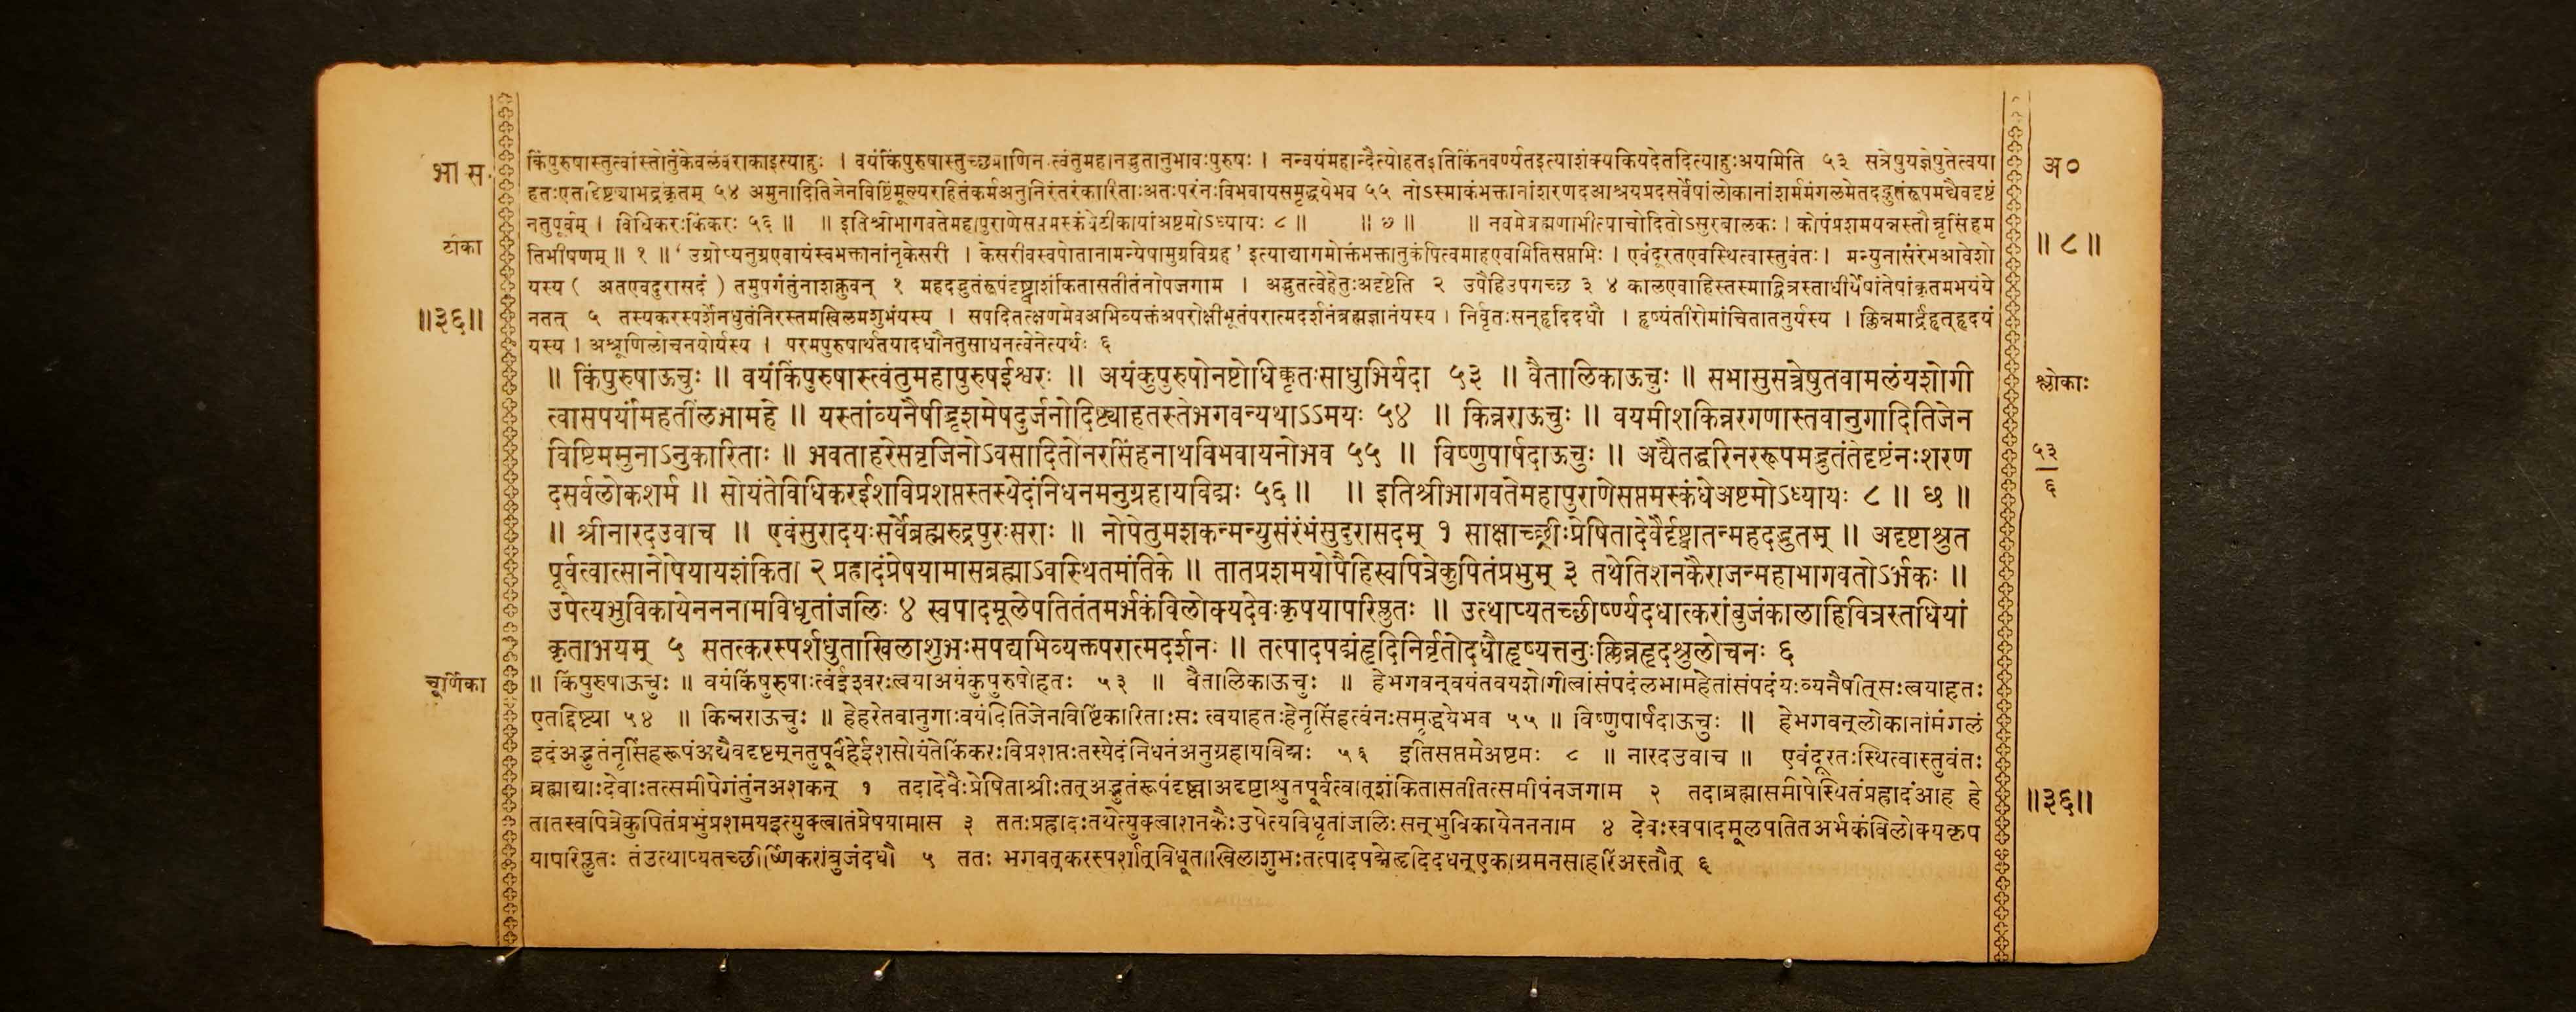 भा स.
टीका
॥३६॥
चूर्णिका
किंपुरुषास्तुत्वांस्तोतुंकेवलंवराकाइत्याहुः । वयंकिंपुरुषास्तुच्छप्राणिन त्वंतुमहानद्भुतानुभावःपुरुषः । नन्वयंमहान्दैत्योहतइतिकिंनवर्ण्यतइत्याशंक्यकियदेतदित्याहुःअयमिति ५३ सत्रेषुयज्ञेषुतेत्वया
हतःएतद्दिष्ट्याभद्रंकृतम् ५४ अमुनादितिजेनविष्टिंमूल्यराहितंकर्मअनुनिरंतरंकारिताःअतःपरंनःविभवायसमृद्धयेभव ५५ नोऽस्माकंभक्तानांशरणदआश्रयप्रदसर्वेषांलोकानांशर्ममंगलमेतदद्भुतंरूपमद्यैवदृष्टं
नतुपूर्वम् । विधिकरःकिंकरः ५६ ॥ ॥ इतिश्रीभागवतेमहापुराणेसप्तमस्कंधेटीकायांअष्टमोऽध्यायः ८ ॥ ॥ ७ ॥ ॥ नवमेब्रह्मणाभीत्याचोदितोऽसुरबालकः । कोपंप्रशमयन्नस्तौन्नृसिंहम
तिभीषणम् ॥ १ ॥ ‘ उग्रोप्यनुग्रएवायंस्वभक्तानांनृकेसरी । केसरीवस्वपोतानामन्येषामुग्रविग्रह’ इत्याद्यागमोक्तंभक्तानुकंपित्वमाहएवमितिसप्तभिः । एवंदूरतएवस्थित्वास्तुवंतः । मन्युनासंरंभआवेशो
यस्य ( अतएवदुरासदं ) तमुपगंतुंनाशक्नुवन् १ महदद्भुतंरूपंदृष्ट्वाशंकितासतीतंनोपजगाम । अद्भुतत्वेहेतुःअदृष्टेति २ उपैहिउपगच्छ ३ ४ कालएवाहिस्तस्माद्वित्रस्ताधीर्येषांतेषांकृतमभयंये
नतत् ५ तस्यकरस्पर्शेनधुतंनिरस्तमखिलमशुभंयस्य । सपदितत्क्षणमेवअभिव्यक्तंअपरोक्षीभूतंपरात्मदर्शनंब्रह्मज्ञानंयस्य । निर्वृतःसन्हृदिदधौ । हृष्यंतीरोमांचितातनुर्यस्य । क्लिन्नमार्द्रंहृत्‌हृदयं
यस्य । अश्रूणिलोचनयोर्यस्य । परमपुरुषार्थतयादधौनतुसाधनत्वेनेत्यर्थः ६
॥ किंपुरुषाऊचुः ॥ वयंकिंपुरुषास्त्वंतुमहापुरुषईश्वरः ॥ अयंकुपुरुषोनष्टोधिक्कृतःसाधुभिर्यदा ५३ ॥ वैतालिकाऊचुः ॥ सभासुसत्रेषुतवामलंयशोगी
त्वासपर्यांमहतींलभामहे ॥ यस्तांव्यनैषीद्भृशमेषदुर्जनोदिष्ट्याहतस्तेभगवन्यथाऽऽमयः ५४ ॥ किन्नराऊचुः ॥ वयमीशकिन्नरगणास्तवानुगादितिजेन
विष्टिममुनाऽनुकारिताः ॥ अवताहरेसवृजिनोऽवसादितोनरसिंहनाथविभवायनोभव ५५ ॥ विष्णुपार्षदाऊचुः ॥ अद्यैतद्धरिनररूपमद्भुतंतेदृष्टंनःशरण
दसर्वलोकशर्म ॥ सोयंतेविधिकरईशविप्रशप्तस्तस्येदंनिधनमनुग्रहायविद्मः ५६ ॥ ॥ इतिश्रीभागवतेमहापुराणेसप्तमस्कंधेअष्टमोऽध्यायः ८ ॥ छ ॥
॥ श्रीनारदउवाच ॥ एवंसुरादयःसर्वेब्रह्मरुद्रपुरःसराः ॥ नोपेतुमशकन्मन्युसंरंभंसुदुरासदम् १ साक्षाच्छ्रीःप्रेषितादेवैर्दृष्ट्वातन्महदद्भुतम् ॥ अदृष्टाश्रुत
पूर्वत्वात्सानोपेयायशंकिता २ प्रहादंप्रेषयामासब्रह्माऽवस्थितमंतिके ॥ तातप्रशमयोपैहिस्वपित्रेकुपितंप्रभुम् ३ तथेतिशनकैराजन्महाभागवतोऽर्भकः ॥
उपेत्यभुविकायेनननामविधृतांजलिः ४ स्वपादमूलेपतितंतमर्भकंविलोक्यदेवःकृपयापरिप्लुतः ॥ उत्थाप्यतच्छीर्ष्ण्यदधात्करांबुजंकालाहिवित्रस्तधियां
कृताभयम् ५ सतत्करस्पर्शधुताखिलाशुभःसपद्यभिव्यक्तपरात्मदर्शनः ॥ तत्पादपद्मंहृदिनिर्वृतोदधौहृष्यत्तनुःक्लिन्नहृदश्रुलोचनः ६
॥ किंपुरुषाऊचुः ॥ वयंकिंपुरुषाःत्वंईश्वरःत्वयाअयंकुपुरुषोहतः ५३ ॥ वैतालिकाऊचुः ॥ हेभगवन्‌वयंतवयशोगीत्वांसंपदंलभामहेतांसंपदंयःव्यनैषीत्‌सःत्वयाहतः
एतद्दिष्ट्या ५४ ॥ किन्नराऊचुः ॥ हेहरेतवानुगाःवयंदितिजेनविष्टिंकारिताःसः त्वयाहतःहेनृसिंहत्वंनःसमृद्धयेभव ५५ ॥ विष्णुपार्षदाऊचुः ॥ हेभगवन्‌लोकानांमंगलं
इदंअद्भुतंनृसिंहरूपंअद्यैवदृष्टम्‌नतुपूर्वंहेईशसोयंतेकिंकरःविप्रशप्तःतस्येदंनिधनंअनुग्रहायविद्मः ५६ इतिसप्तमेअष्टमः ८ ॥ नारदउवाच ॥ एवंदूरतःस्थित्वास्तुवंतः
ब्रह्माद्याःदेवाःतत्समीपेगंतुंनअशकन् १ तदादेवैःप्रेषिताश्रीःतत्‌अद्भुतंरूपंदृष्ट्वाअदृष्टाश्रुतपूर्वत्वात्‌शंकितासतीतत्समीपंनजगाम २ तदाब्रह्मासमीपेस्थितंप्रह्रादंआह हे
तातस्वपित्रेकुपितंप्रभुंप्रशमयइत्युक्त्वातंप्रेषयामास ३ ततःप्रह्रादःतथेत्युक्त्वाशनकैःउपेत्यविधृतांजालिःसन्‌भुविकायेनननाम ४ देवःस्वपादमूलपतितअर्भकंविलोक्यकृप
यापरिप्लुतः तंउत्थाप्यतच्छीर्ष्णिकरांबुजंदधौ ५ ततः भगवत्‌करस्पर्शात्‌विधूताखिलाशुभःतत्पादपद्मेहृदिदधन्‌एकाग्रमनसाहरिंअस्तौत् ६
अ०
॥ ८ ॥
श्लोकाः
५३
६
॥३६॥